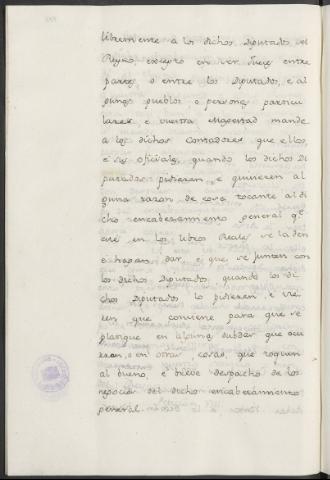 libremente a los dichos Diputados del
Reyno, excepto en ser Juez entre
partes o entre los Diputados, e al
gunos pueblos e personas particu
lares e vuestra Magestad mande
a los dichos Contadores que ellos,
e sus oficiales, quando los dichos Di
putados pidieren, e quisieren al
guna razon, de cosa tocante al di
cho encabezamiento general qe
esté en los libros Reales se la den
e hagan dar, e que se junten con
los dichos Diputados quando los di
chos Diputados lo pidieren, e vie
ren que conviene para que se
platique en alguna cosa que ocu
rran, o en otras cosas, que toquen
al bueno, e breve despacho de los
negocios del dicho encabezamiento
general.